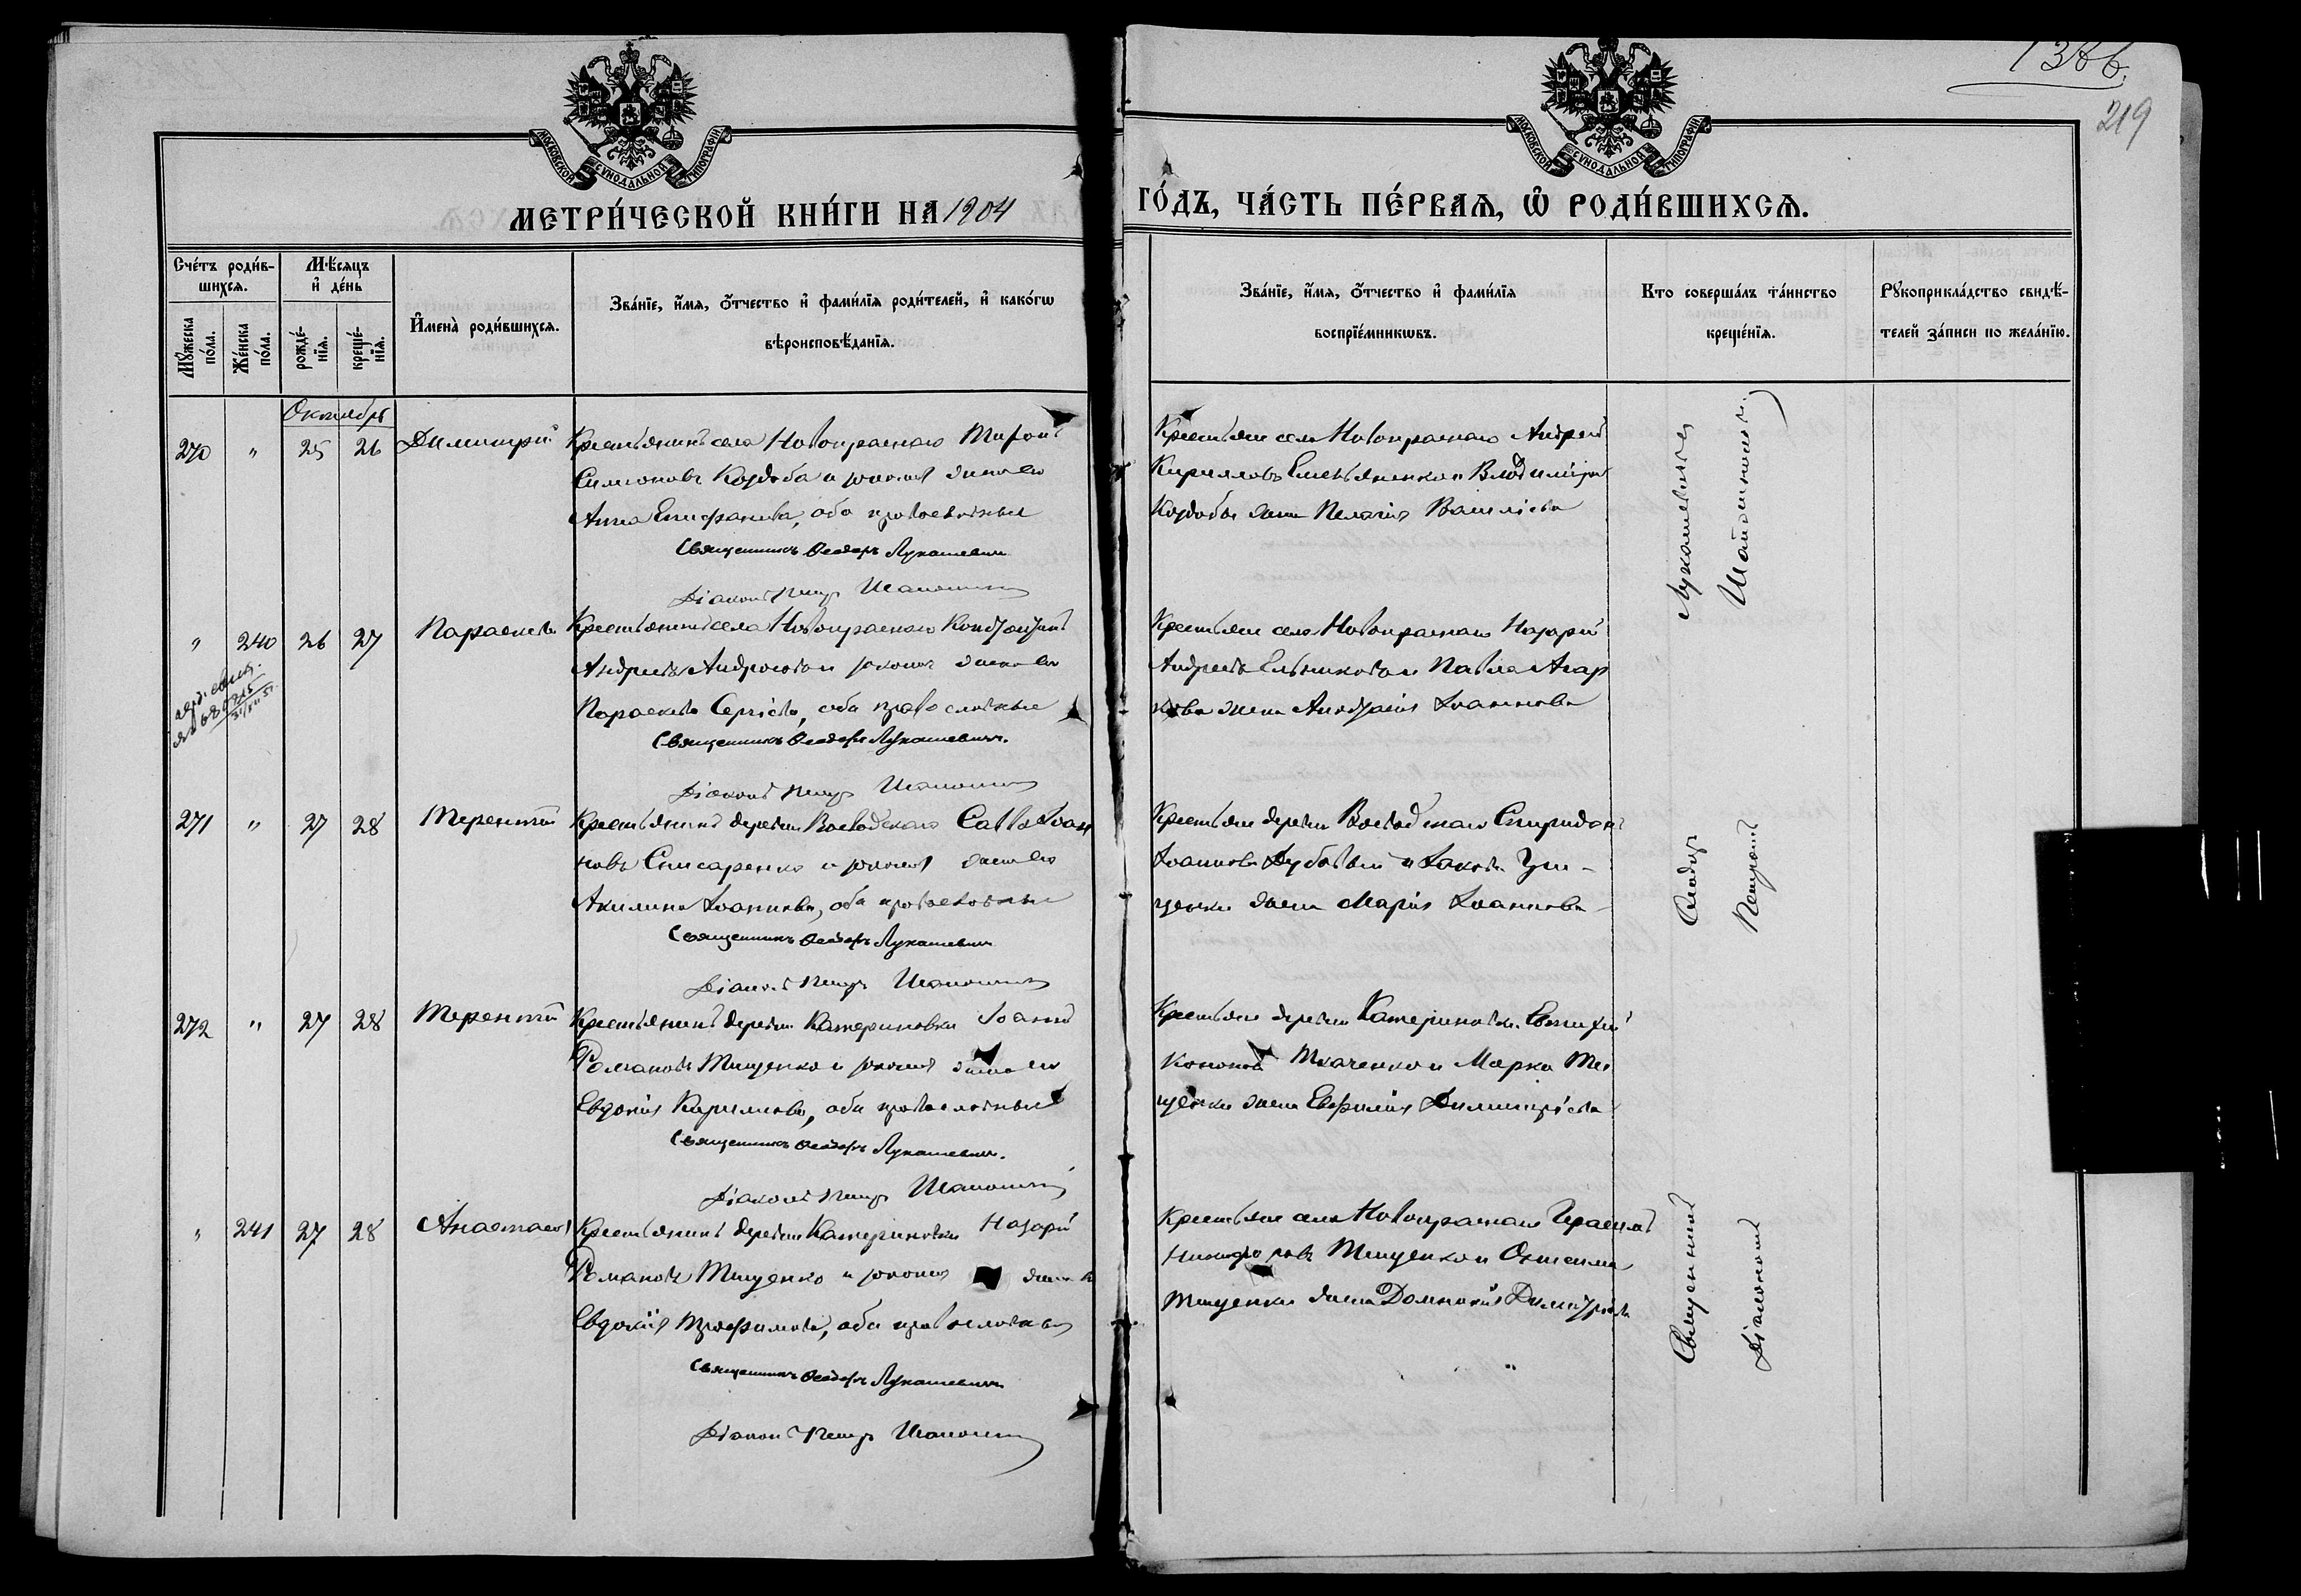 1386.
219
МОСКОВСКОЙ СѴНОДАЛЬНОЙ ТИПОГРАФІИ
МОСКОВСКОЙ СѴНОДАЛЬНОЙ ТИПОГРАФІИ
МЕТРИ́ЧЕСКОЙ КНИ́ГИ НА 1904
ГО́ДЪ, ЧА́СТЬ ПЕ́РВАѦ, Ѽ РОДИ́ВШИХСѦ.
Сче́тъ роди́в-
шихсѧ.
Мꙋ́жеска по́ла.
Же́нска по́ла.
Мѣ́сѧцъ
и҆ де́нь
рожде́-
нїѧ.
креще́-
нїѧ.
И҆мена̀ роди́вшихсѧ.
Зва́нїе, и҆́мѧ, ѻ҆́тчество и҆ фами́лїѧ роди́телей, и҆ како́гѡ
вѣроисповѣ́данїѧ.
Зва́нїе, и҆́мѧ, ѻ҆́тчество и҆ фами́лїѧ
воспрїе́мникѡвъ.
Кто соверша́лъ та́инство
креще́нїѧ.
Рꙋкоприкла́дство свидѣ́-
телей за́писи по жела́нїю.
Октябрь
270 " 25 26 Димитрій
Крестьянинъ села Новопражскаго Миронъ
Симоновъ Кордоба и законная жена его
Анна Епифаніева, оба православные
Священникъ Ѳеодоръ Лукашевичъ
Діаконъ Петръ
Крестьяне села Новопражскаго Андрей
Кирилловъ Емельяненко и Владиміра
Кордобы жена Пелагія Васильева
" 240 26 27 Параскева
Крестьянинъ села Новопражскаго Константинъ
Андреевъ и законная жена его
Параскева Сергіева, оба православные
Священникъ Ѳеодоръ Лукашевичъ.
Діаконъ Петръ
Крестьяне села Новопражскаго Назарій
Андреевъ Ельниковъ и Павла
жена Анастасія Іоаннова
271 " 27 28 Терентій
Крестьянинъ деревни Воеводскаго Савва Іоан
новъ Писаренко и законная жена его
Акилина Іоаннова, оба православные
Священникъ Ѳеодоръ Лукашевичъ
Діаконъ Петръ
Крестьяне деревни Воеводскаго Спиридонъ
Іоанновъ Дубовый и Іакова Гри-
ценки жена Марія Іоаннова
272 " 27 28 Терентій
Крестьянинъ деревни Катериновки Іоаннъ
Романовъ Тищенко и законная жена его
Евдокія Кириллова, оба православные
Священникъ Ѳеодоръ Лукашевичъ.
Діаконъ Петръ
Крестьяне деревни Катериновки Евтихій
Кононовъ Ткаченко и Марка Ти
щенки жена Евфимія Димитріева
" 241 27 28 Анастасія
Крестьянинъ деревни Катериновки Назарій
Романовъ Тищенко и законная жена его
Евдокія Трофимова, оба православные
Священникъ Ѳеодоръ Лукашевичъ
Діаконъ Петръ
Крестьяне села Новопражскаго Герасимъ
Никифоровъ Тищенко и
Тищенки жена Домникія Димитріева
Священникъ Ѳеодоръ Лукашевичъ
Діакономъ Петромъ